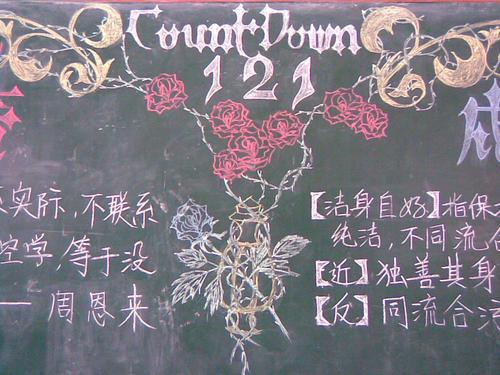 Count Down
121
实际,不联系
学,等于没
—周恩来
【洁身自好】指保
纯洁,不同流合
【近】独善其身
【反】同流合污